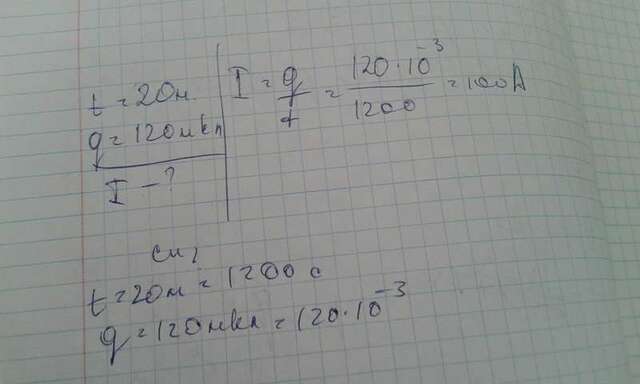 t = 20м
q = 120мкл
I - ?
I = q/t = 120·10⁻³/1200 = 100А
си;
t = 20м = 1200 с
q = 120мкл = 120·10⁻³